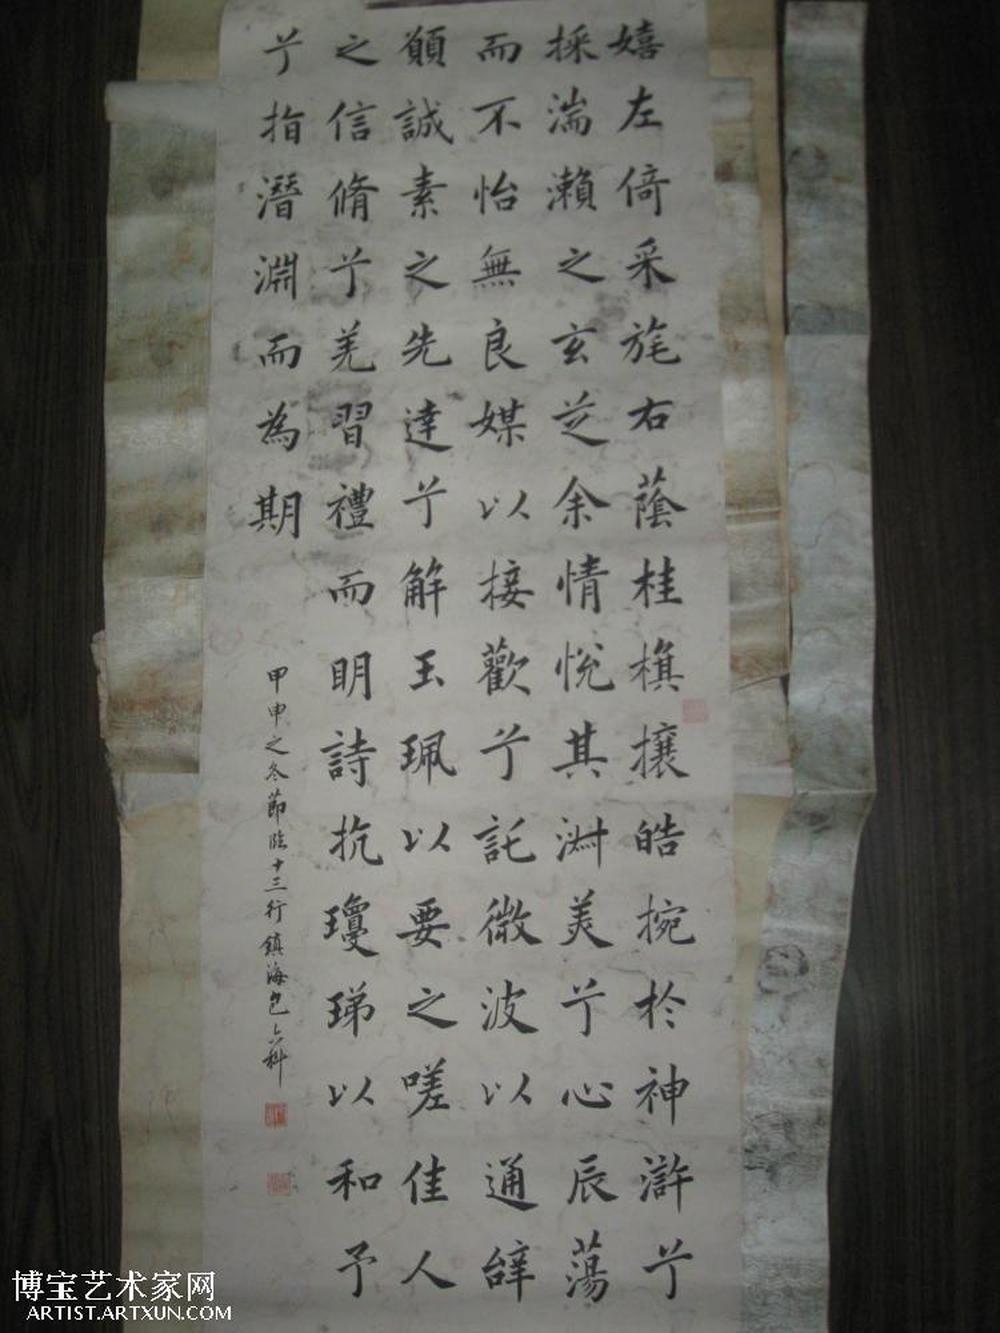 嬉左倚采旄右蔭桂旗攘皓捥於神滸兮
採湍瀨之玄芝余情悅其淋美兮心辰蕩
而不怡無良媒以接歡兮託微波以通辭
願誠素之先達兮解玉珮以要之嗟佳人
之信脩兮羌習禮而明詩抗瓊珶以和予
兮指潛淵而為期
甲申之冬節臨十三行鎮海包科
博宝艺术家网
ARTIST.ARTXUN.COM